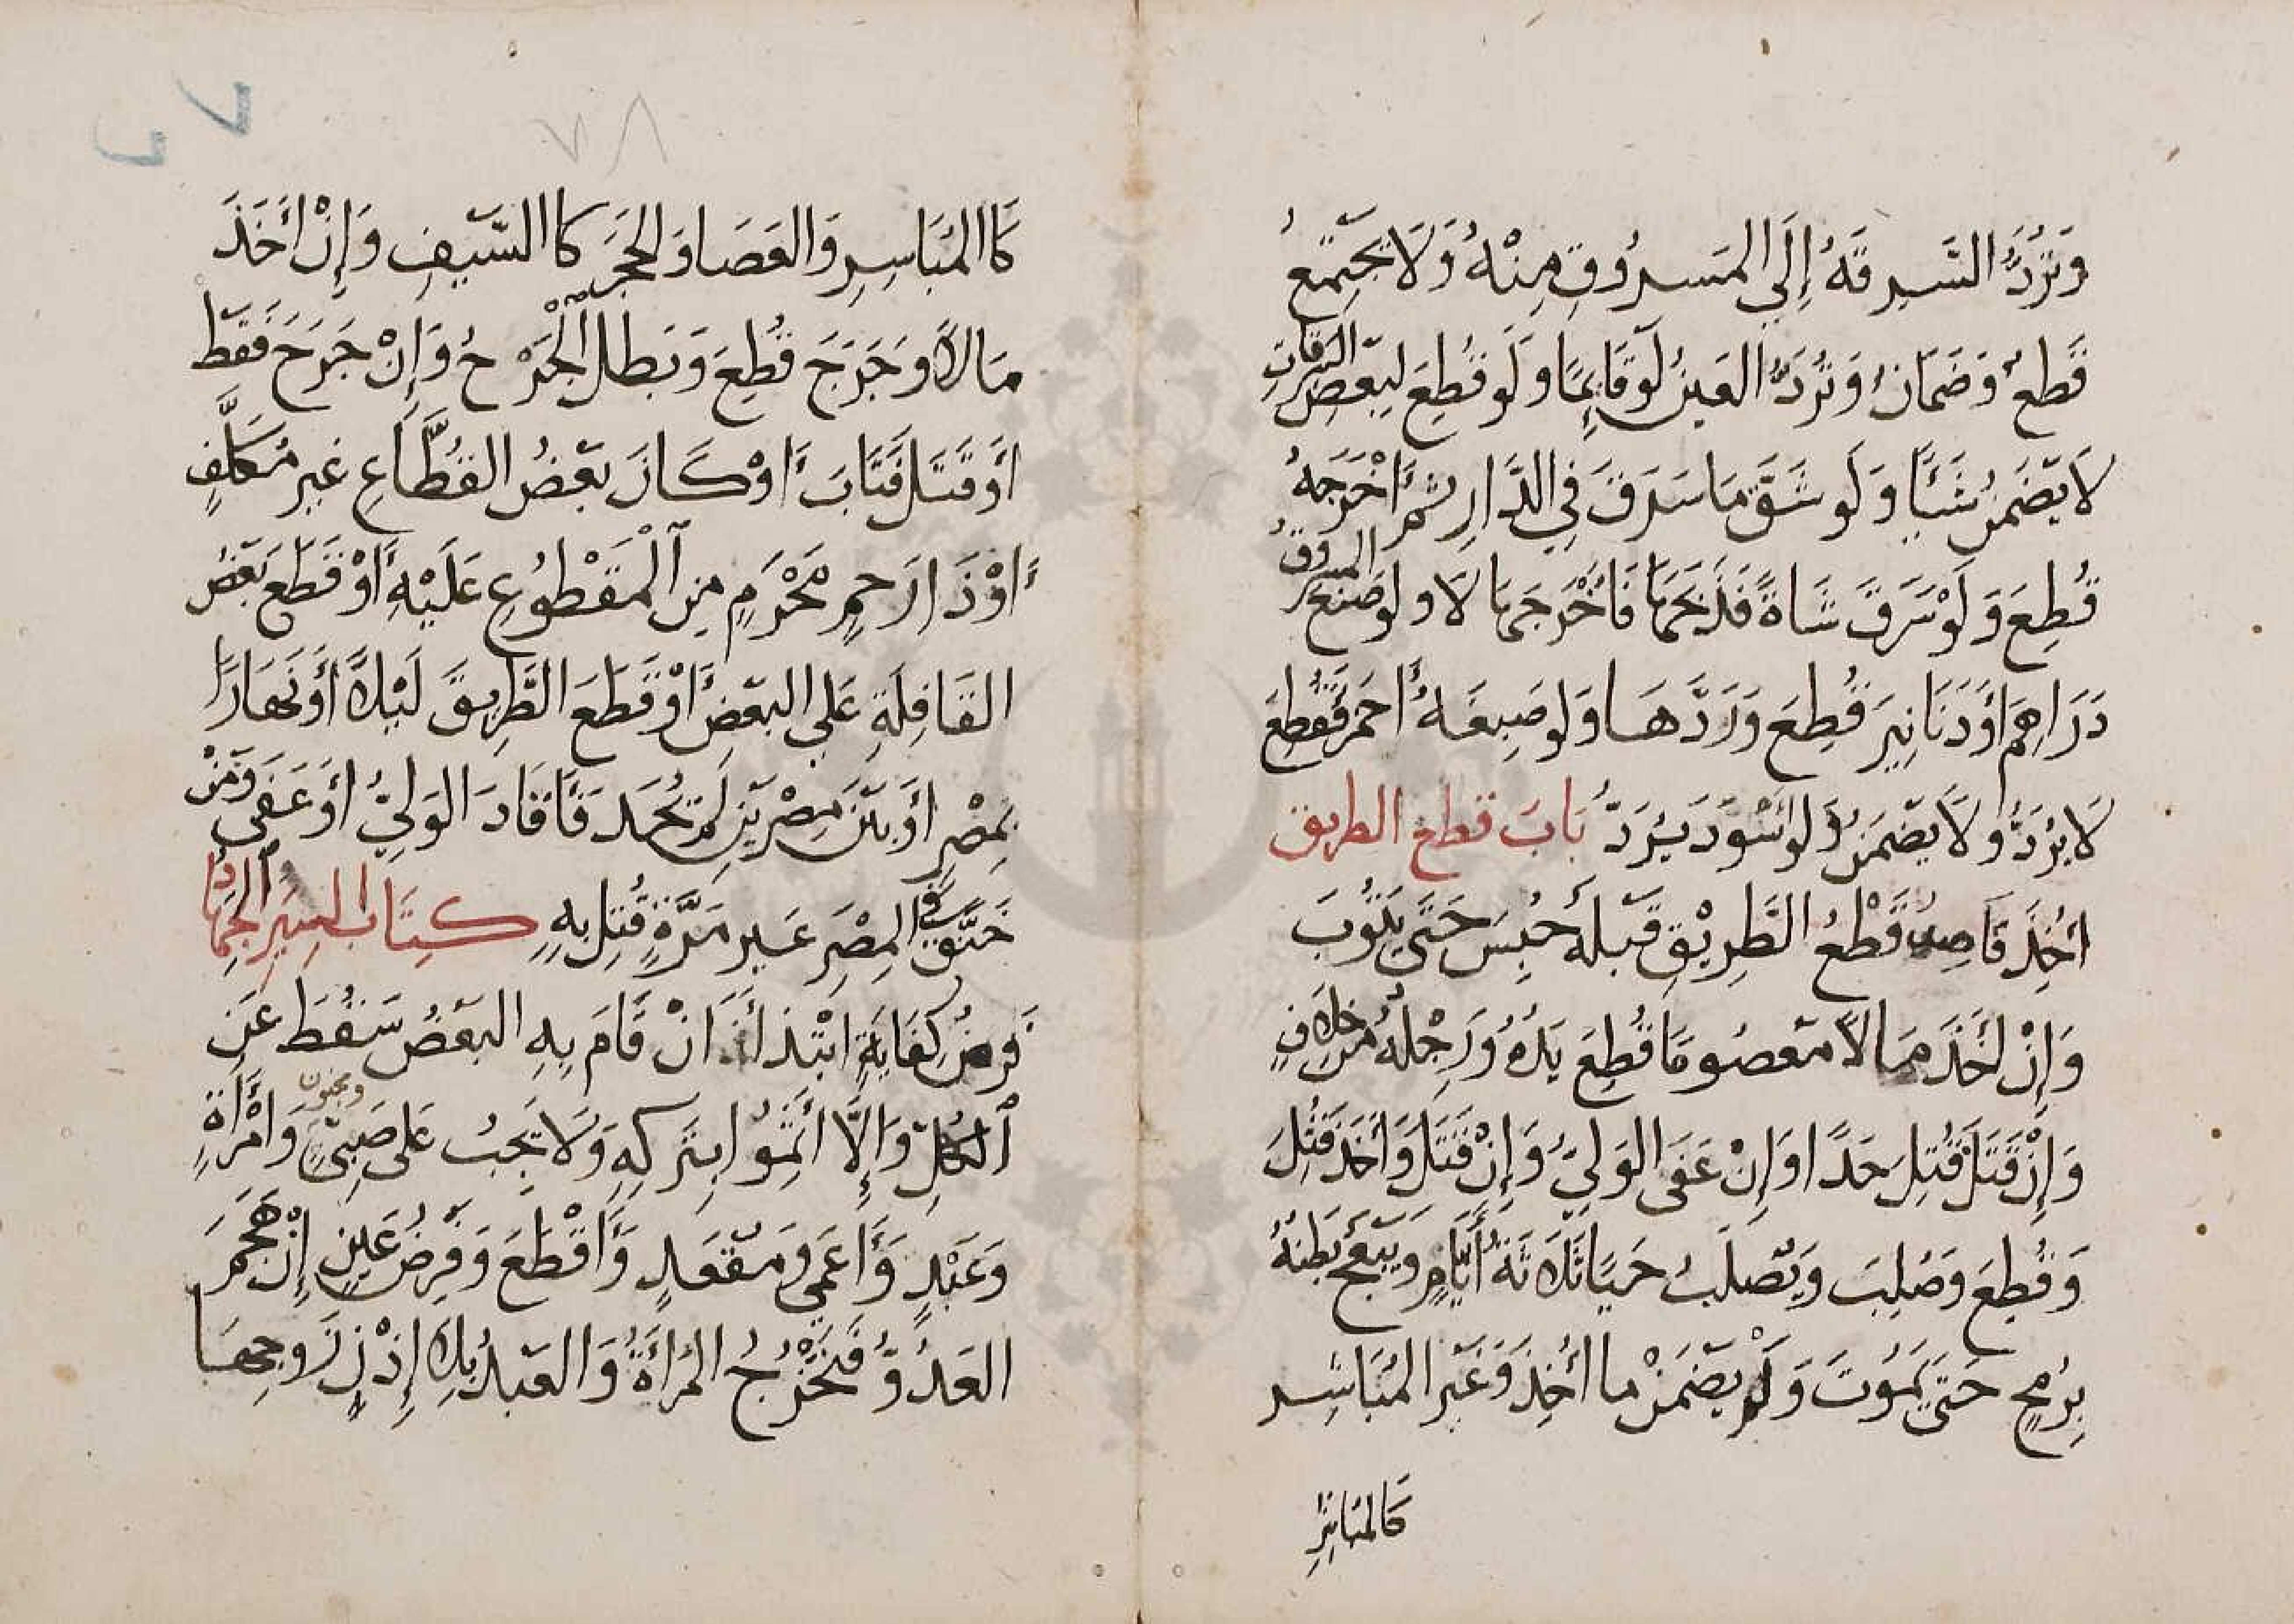 وَتُرَدُّ السَّرِقَةُ إِلَى المَسرُوقِ مِنْهُ وَلَا يَجْتَمِعُ
قَطعٌ وَضَمَانٌ وَتُرَدُّ العَينُ لَو قَايِمًا وَلَو قُطِعَ لِبَعضِ السَّرِقَاتِ
لَا يَضمَنُ شَيْأً وَلَو شَقَّ مَا سَرَقَ فِي الدَّارِ ثُمَّ أَخْرَجَهُ
قُطِعَ وَلَوْ سَرَقَ شَاةً فَذَبَحَهَا فَأَخْرَجَهَا لَا وَلَو صَنَعَ المسروقُ
دَرَاهِمَ أَو دَنَانِيرَ قُطِعَ وَرَدَّهَا وَلَو صَبِغَهُ أَحمَرَ فَقُطِعَ
لَا يُرَدُّ وَلَا يَضمَنُ وَلَو أَسْوَدَ يُرَدُّ بَابَ قطع الطريق
أُخِذَ قَاصِدُ قَطْعُ الطَّرِيْقِ قَبلَهُ حُبِسَ حَتَّى يَتُوبَ
وَإِنْ أَخَذَ مَالاً مَعصُومَا قُطِعَ يَدُهُ وَرِجْلُهُ مِن خِلَافٍ
وَإِنْ قَتَلَ قُتِلَ حَدًا وَإِنْ عَفَى الوَلِيُّ وَإِنْ قَتَلَ وَأَخَذَ قُتِلَ
وَقُطِعَ وَصُلِبَ وَيُصْلَبُ حَيًا ثَلَاثَةَ أَيَّامٍ وَيُبعَجُ بَطنُهُ
بِرُمحٍ حَتَّى يَمُوتَ وَلَم يَضمَنْ مَا أُخِذَ وَغَيرَ المُبَاشِر
كَالمُبَاشِرِ
٧٨
كَاالمُبَاسِرِ وَالعَصَا وَالحَجَرَ كَاالسَّيفِ وَإِنْ أَخَذَ
مَالاً وَجَرَحَ قُطِعَ وَبَطَلَ الْجُرْحُ وَإِنْ جَرَحَ فَقَط
أَو قَتَلَ فَتَابَ أَاوْ كَانَ بَعضُ القُطَّاعِ غَيرَ مُكَلَّفٍ
أَاوْ ذَا رَحِمٍ مَحْرَمٍ مِنَ الْمَقْطُوعِ عَلَيْهِ أَاوْ قَطَعَ بَعضُ
القَافِلَةِ عَلَي البَعضِ أَاوْ قَطَعَ الطَّرِيقَ لَيْلاً أَو نَهَارًا
بِمِصْرٍ أَو بَينَ مِصْرَينِ لَمْ يُحَد فَأَقَادَ الوَلِيُّ أَو عَفَى وَمَنْ
خَنَقَ فِي المِصْرِ غَيرَ مَرَّةٍ قُتِلَ بِهِ كِتَابُ السِيَرِ الجِهَادُ
فَرضُ كِفَايَةٍ ابْتِدَاً إنْ قَامَ بِهِ البَعضُ سَقَطَ عَنِ
الكُلِّ وَإِلَّا أَثِمُوا بِتَركِهِ وَلَا يَجِبُ عَلى صَبِيٍّ ومجنون وَامْرَأَةٍ
وَعَبْدٍ وَأَعمَي وَمُقعَدٍ وَأَقْطَعَ وَفَرضُ عَينٍ إِنْ هَجَمَ
العَدُوُّ فَتَخْرُجُ المَرأَةُ وَالعَبدُ بِلَا إِذْنِ زَوجِهَا